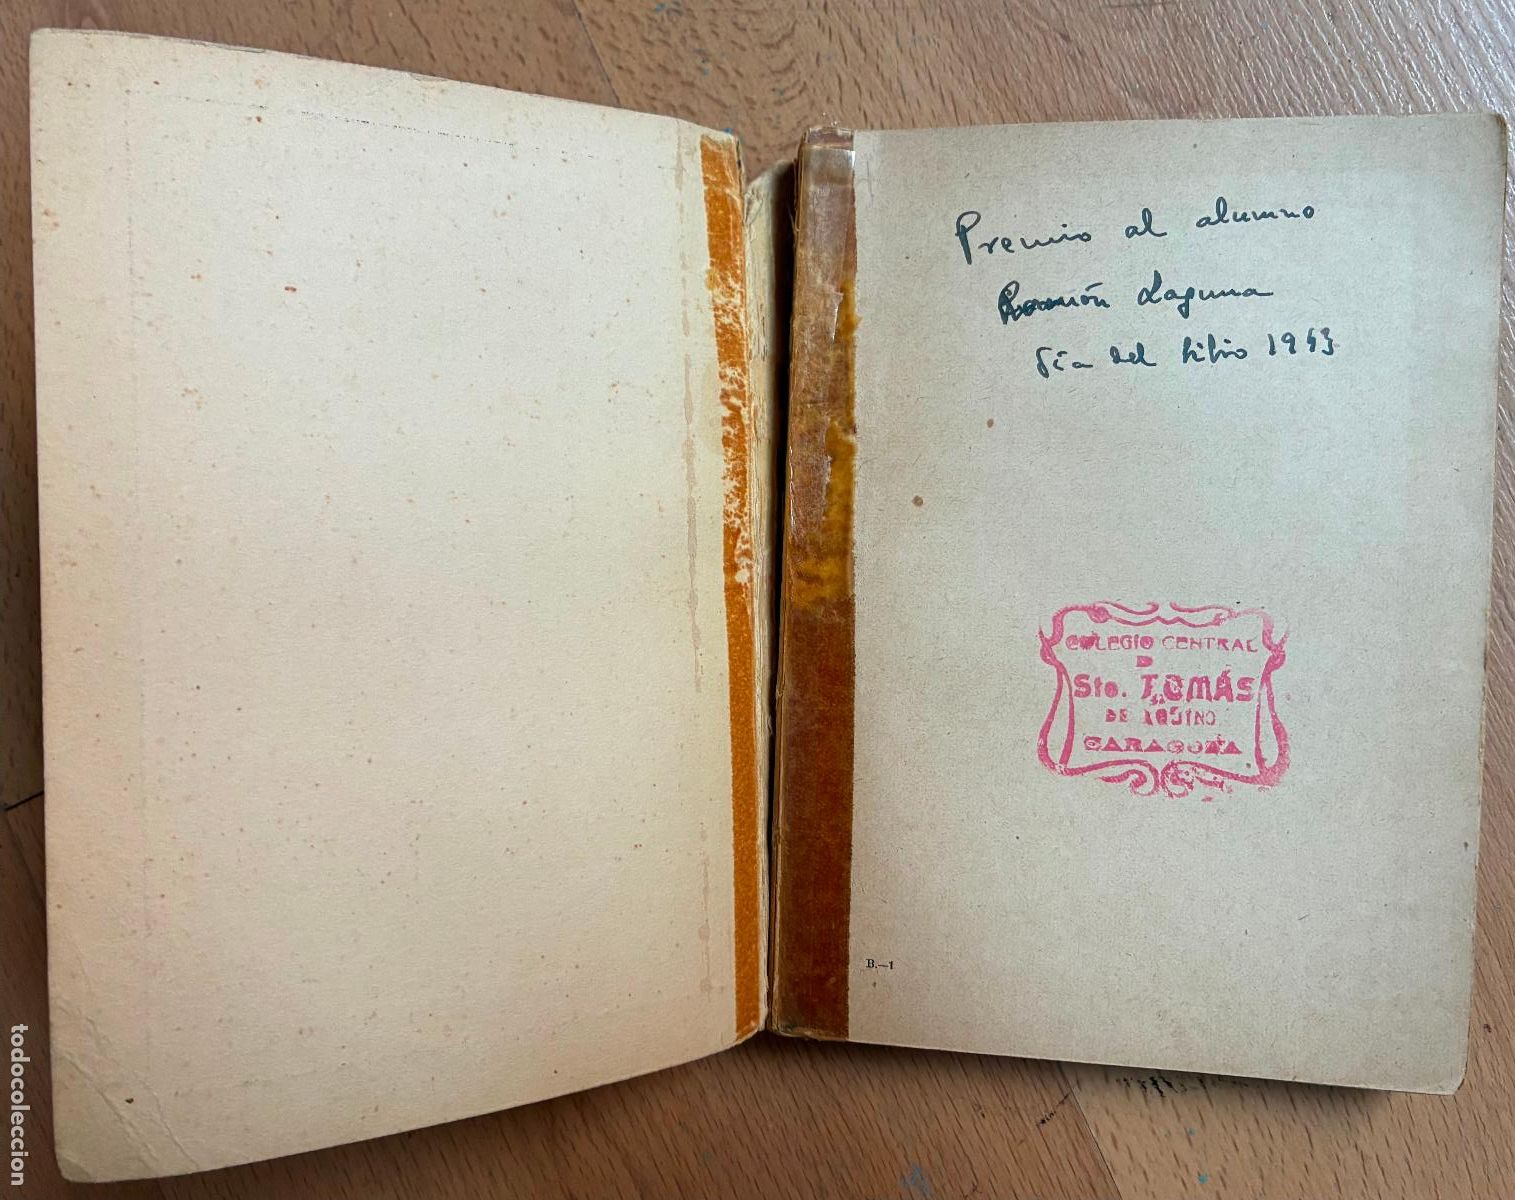 Premio al alumno
Ramón Laguna
Día del libro 1953
COLEGIO CENTRAL
D
Sto. TOMÁS
DE AQUINO
ZARAGOZA
B.—1
todocoleccion